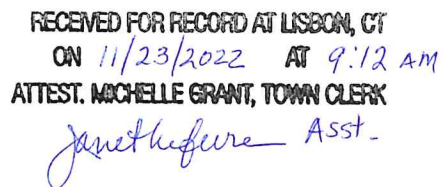 RECEIVED FOR RECORD AT LISBON, CT
ON 11/23/2022 AT 9:12 AM
ATTEST. MICHELLE GRANT, TOWN CLERK
Janet Asst.